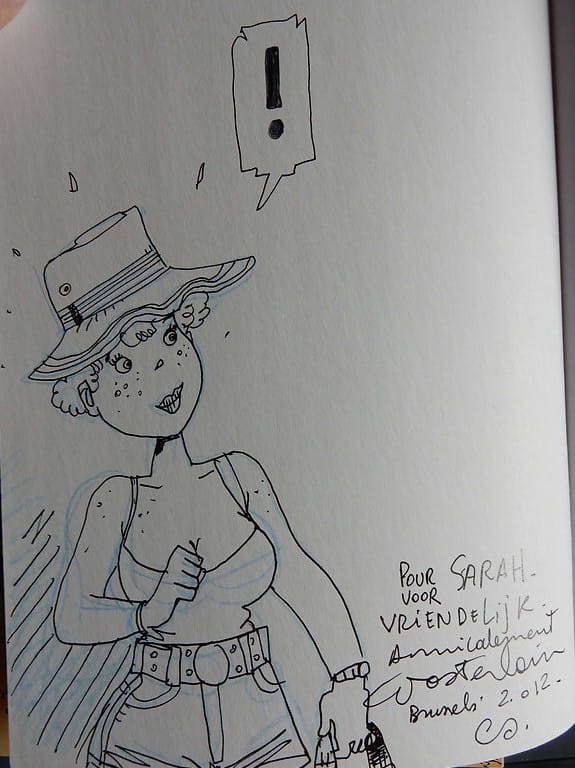 !
POUR SARAH-
VOOR
VRIENDELIJK.
Amicalement
Wasterlain
Brussels. 2.012.